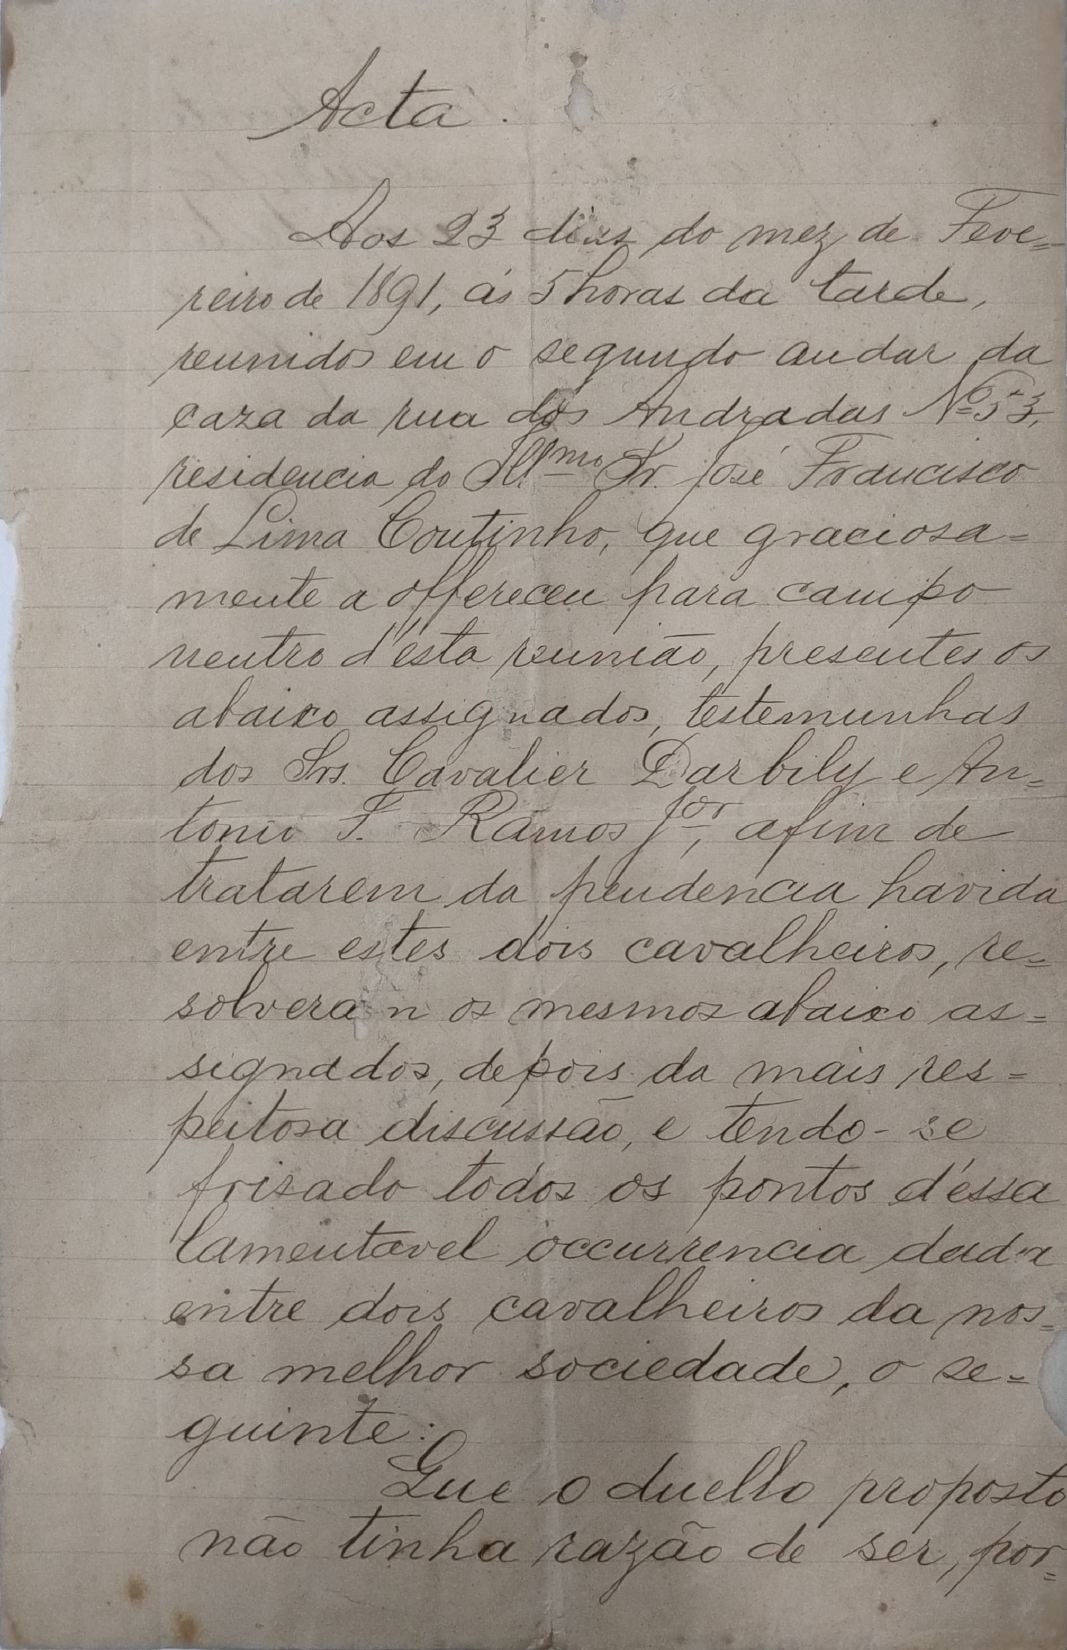 Acta.
Aos 23 dias do mez de Feve=
reiro de 1891, ás 5 horas da tarde,
reunidos em o segundo andar da
caza da rua dos Andradas Nº 53,
residencia do Illmo Sr. José Francisco
de Lima Coutinho, que graciosa=
mente a offereceu para campo
neutro d'esta reunião, presentes os
abaixo assignados, testemunhas
dos Srs. Cavalier Darbily e An=
tonio F. Ramos Jor, afim de
tratarem da pendencia havida
entre estes dois cavalheiros, re=
solveram os mesmos abaixo as=
signados, depois da mais res=
peitosa discussão, e tendo-se
frisado todos os pontos d'éssa
lamentavel occurrencia dada
entre dois cavalheiros da nos=
sa melhor sociedade, o se=
guinte:
Que o duello proposto
não tinha razão de ser, por=